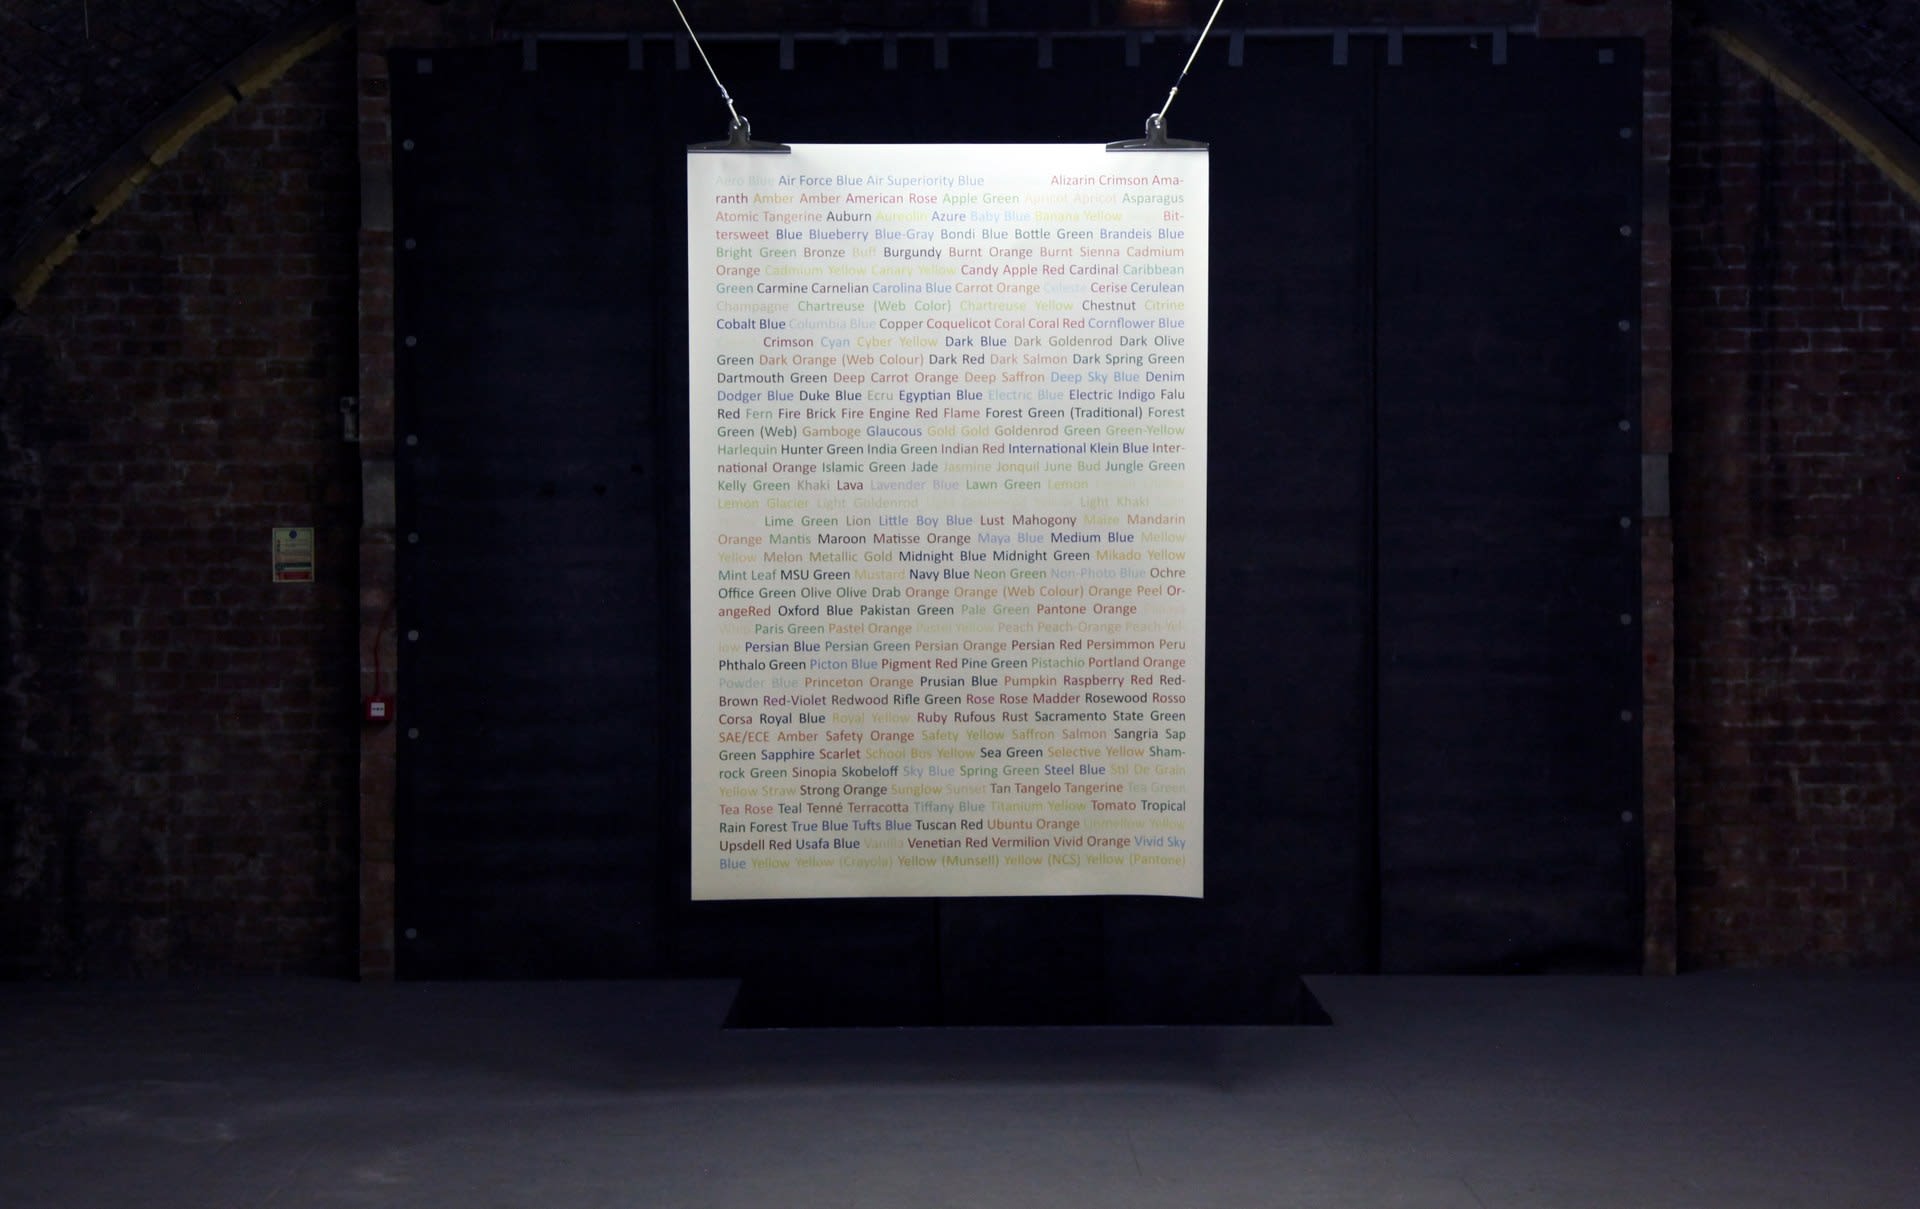 Aero Blue Air Force Blue Air Superiority Blue Alizarin Crimson Ama-
ranth Amber Amber American Rose Apple Green Apricot Apricot Asparagus
Atomic Tangerine Auburn Aureolin Azure Baby Blue Banana Yellow Bit-
tersweet Blue Blueberry Blue-Gray Bondi Blue Bottle Green Brandeis Blue
Bright Green Bronze Buff Burgundy Burnt Orange Burnt Sienna Cadmium
Orange Cadmium Yellow Canary Yellow Candy Apple Red Cardinal Caribbean
Green Carmine Carnelian Carolina Blue Carrot Orange Celeste Cerise Cerulean
Champagne Chartreuse (Web Color) Chartreuse Yellow Chestnut Citrine
Cobalt Blue Columbia Blue Copper Coquelicot Coral Coral Red Cornflower Blue
Crimson Cyan Cyber Yellow Dark Blue Dark Goldenrod Dark Olive
Green Dark Orange (Web Colour) Dark Red Dark Salmon Dark Spring Green
Dartmouth Green Deep Carrot Orange Deep Saffron Deep Sky Blue Denim
Dodger Blue Duke Blue Ecru Egyptian Blue Electric Blue Electric Indigo Falu
Red Fern Fire Brick Fire Engine Red Flame Forest Green (Traditional) Forest
Green (Web) Gamboge Glaucous Gold Gold Goldenrod Green Green-Yellow
Harlequin Hunter Green India Green Indian Red International Klein Blue Inter-
national Orange Islamic Green Jade Jasmine Jonquil June Bud Jungle Green
Kelly Green Khaki Lava Lavender Blue Lawn Green Lemon
Lemon Glacier Light Goldenrod Light Khaki
Lime Green Lion Little Boy Blue Lust Mahogany Maize Mandarin
Orange Mantis Maroon Matisse Orange Maya Blue Medium Blue Mellow
Yellow Melon Metallic Gold Midnight Blue Midnight Green Mikado Yellow
Mint Leaf MSU Green Mustard Navy Blue Neon Green Non-Photo Blue Ochre
Office Green Olive Olive Drab Orange Orange (Web Colour) Orange Peel Or-
angeRed Oxford Blue Pakistan Green Pale Green Pantone Orange
Whip Paris Green Pastel Orange Pastel Yellow Peach Peach-Orange Peach-Yel-
low Persian Blue Persian Green Persian Orange Persian Red Persimmon Peru
Phthalo Green Picton Blue Pigment Red Pine Green Pistachio Portland Orange
Powder Blue Princeton Orange Prusian Blue Pumpkin Raspberry Red Red-
Brown Red-Violet Redwood Rifle Green Rose Rose Madder Rosewood Rosso
Corsa Royal Blue Royal Yellow Ruby Rufous Rust Sacramento State Green
SAE/ECE Amber Safety Orange Safety Yellow Saffron Salmon Sangria Sap
Green Sapphire Scarlet School Bus Yellow Sea Green Selective Yellow Sham-
rock Green Sinopia Skobeloff Sky Blue Spring Green Steel Blue Stil De Grain
Yellow Straw Strong Orange Sunglow Sunset Tan Tangelo Tangerine Tea Green
Tea Rose Teal Tenné Terracotta Tiffany Blue Titanium Yellow Tomato Tropical
Rain Forest True Blue Tufts Blue Tuscan Red Ubuntu Orange Unmellow Yellow
Upsdell Red Usafa Blue Vanilla Venetian Red Vermilion Vivid Orange Vivid Sky
Blue Yellow Yellow (Crayola) Yellow (Munsell) Yellow (NCS) Yellow (Pantone)